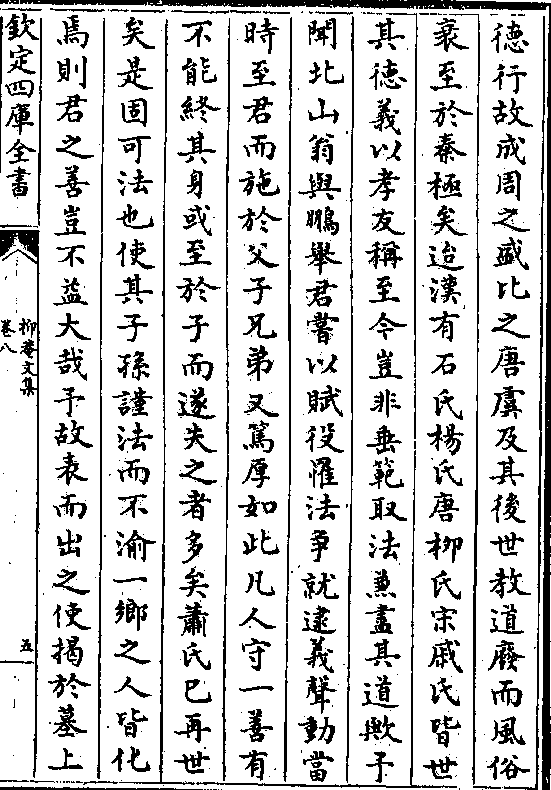 德行故成周之盛比之唐虞及其後世教道廢而風俗
衰至於秦極矣迨漢有石氏楊氏唐柳氏宋戚氏皆世
其德義以孝友稱至今豈非垂範取法兼盡其道歟予
聞北山翁與鵬舉君嘗以賦役罹法爭就逮義聲動當
時至君而施於父子兄弟又篤厚如此凡人守一善有
不能終其身或至於子而遂失之者多矣蕭氏已再世
矣是固可法也使其子孫謹法而不渝一鄉之人皆化
焉則君之善豈不益大哉予故表而出之使揭於墓上
欽定四庫全書
抑菴文集
卷八
五